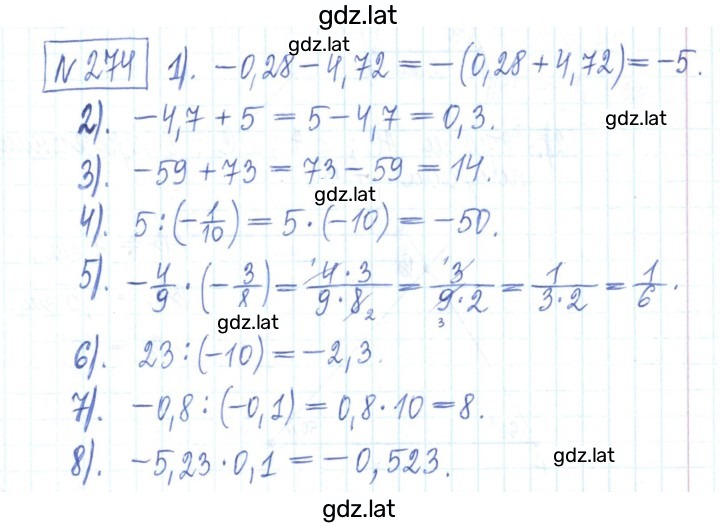 gdz.lat
gdz.lat
№ 274 1). −0,28 − 4,72 = −(0,28 + 4,72) = −5.
2). −4,7 + 5 = 5 − 4,7 = 0,3.
gdz.lat
3). −59 + 73 = 73 − 59 = 14.
gdz.lat
4). 5 : (−1/10) = 5 · (−10) = −50.
5). −4/9 · (−3/8) = ¹4·3/9·8₂ = ¹3/₃9·2 = 1/3·2 = 1/6.
gdz.lat
6). 23 : (−10) = −2,3.
7). −0,8 : (−0,1) = 0,8 · 10 = 8.
8). −5,23 · 0,1 = −0,523.
gdz.lat
gdz.lat